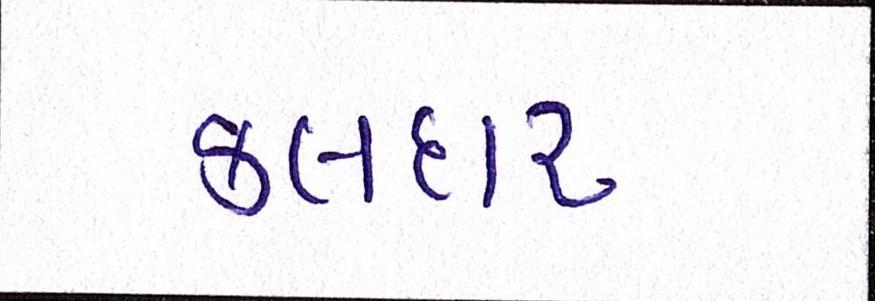 કલદાર